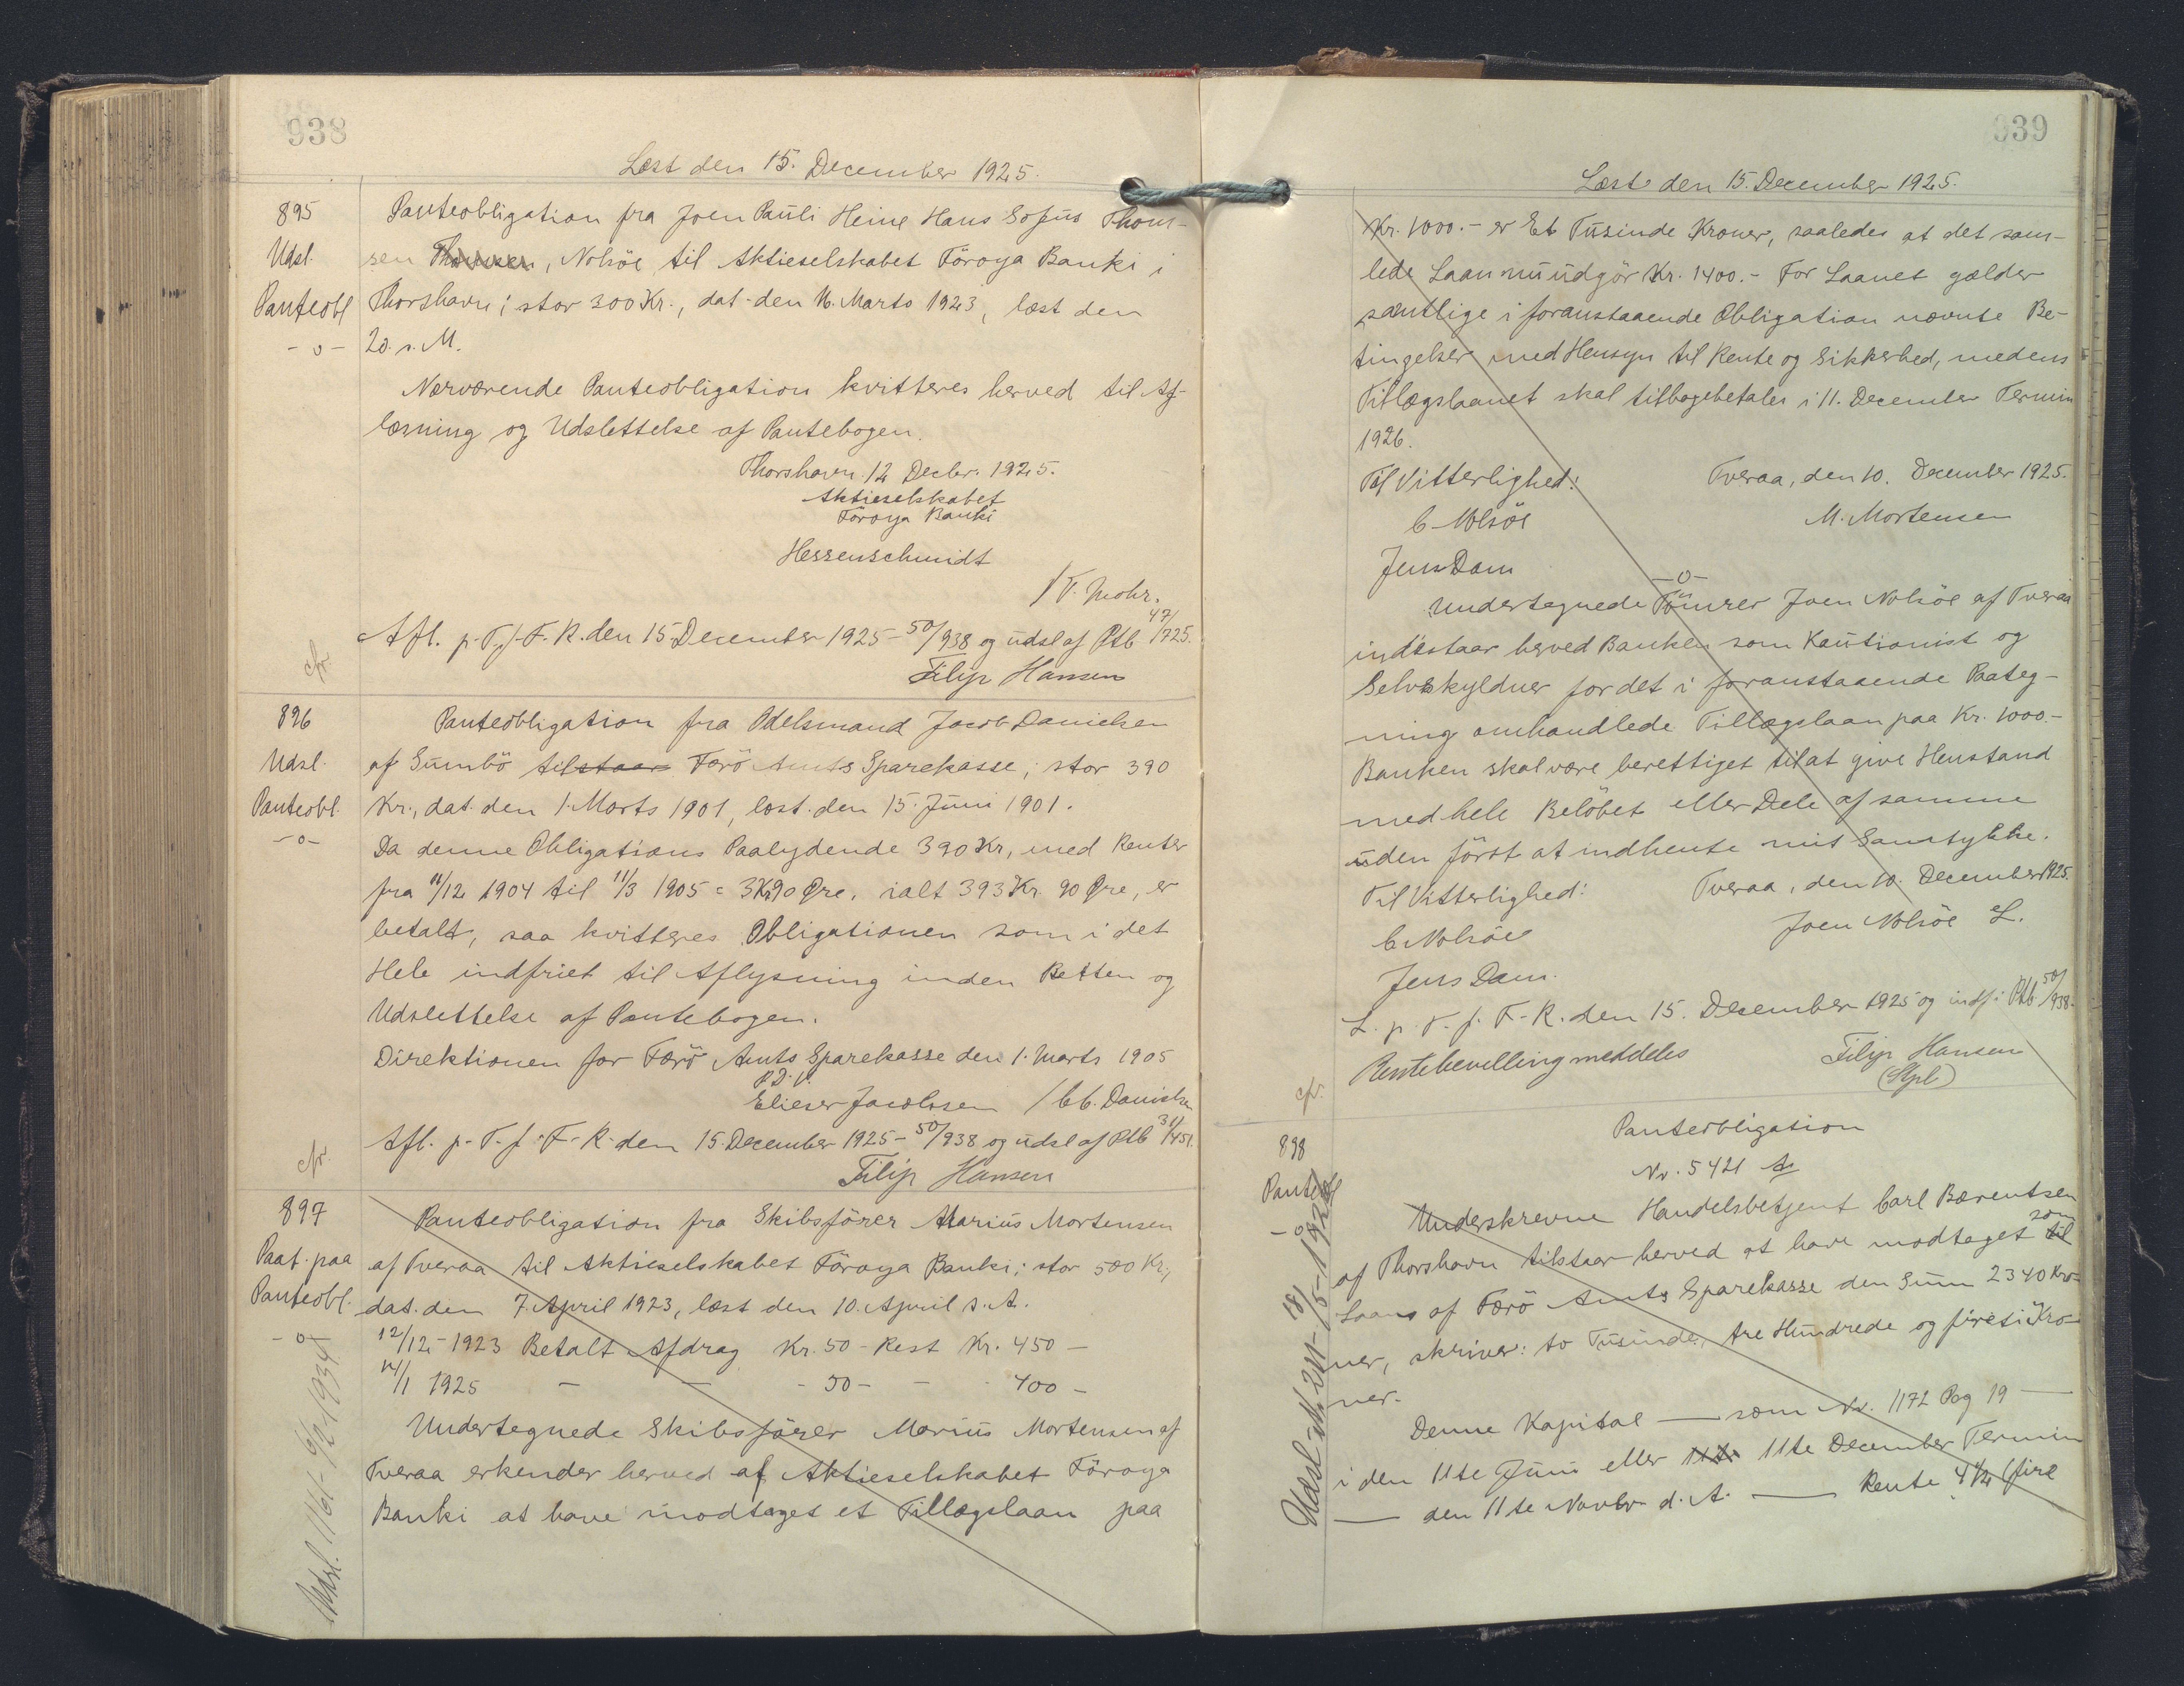 938
Læst den 15. December 1925.
895
Udsl.
Panteobl
-o-
Panteobligation fra Joen Pauli Heine Hans Sofus Thom-
sen Thomsen, Nolsöe til Aktieselskabet Föroya Banki i
Thorshavn; stor 300 Kr., dat. den 16. Marts 1923, læst den
20. s. M.
Nærværende Panteobligation kvitteres herved til Af-
læsning og Udslettelse af Pantebogen.
Thorshavn 12 Decbr. 1925.
Aktieselskabet
Föroya Banki
Hessenschmidt
/V. Mohr.
Afl. p. T. f. F. R. den 15. December 1925 - 50/938 og udsl af Ptb 47/725.
Filip Hansen
cfr.
896
Udsl.
Panteobl.
-o-
Panteobligation fra Odelsmand Jacob Danielsen
af Sumbö tilstaar Færö Amts Sparekasse; stor 390
Kr., dat. den 1. Marts 1901, læst. den 15. Juni 1901.
Da denne Obligations Paalydende 390 Kr, med Renter
fra 11/12 1904 til 11/3 1905 = 3 Kr 90 Øre, ialt 393 Kr. 90 Øre, er
betalt, saa kvitteres Obligationen som i det
Hele indfriet til Aflysning inden Retten og
Udslettelse af Pantebogen.
Direktionen for Færö Amts Sparekasse den 1. Marts 1905
P. D. V.
Elieser Jacobsen / C.C. Danielsen
Afl. p. T. f. F. R. den 15. December 1925 - 50/938 og udsl af Ptb 31/451.
Filip Hansen
cfr.
897
Paat. paa
Panteobl.
-o-
Panteobligation fra Skibsförer Marius Mortensen
af Tveraa til Aktieselskabet Föroya Banki; stor 500 Kr.,
dat. den 7. April 1923, læst den 10. April s. A.
12/12 - 1923 Betalt Afdrag Kr. 50 - Rest Kr. 450 -
1925 - - - 50 - - 400 -
Undertegnede Skibsförer Marius Mortensen af
Tveraa erkender herved af Aktieselskabet Föroya
Banki at have modtaget et Tillægslaan paa
Udsl. 1161 - 6/2 1934
939
Læst den 15. December 1925.
Kr. 1000.- er Et Tusinde Kroner, saaledes at det sam-
lede Laan nu udgör Kr. 1400.- For Laanet gælder
samtlige i foranstaaende Obligation nævnte Be-
tingelser med Hensyn til Rente og Sikkerhed, medens
Tillægslaanet skal tilbagebetales i 11. December Termin
1926.
Til Vitterlighed: Tveraa, den 10. December 1925.
C Nolsöe M. Mortensen
Jens Dam
-o-
Undertegnede Tömrer Joen Nolsöe af Tveraa
indestaar herved Banken som Kautionist og
Selvskyldner for det i foranstaaende Paateg-
ning omhandlede Tillægslaan paa Kr. 1000.-
Banken skal være berettiget til at give Henstand
med hele Belöbet eller Dele af samme
uden först at indhente mit Samtykke.
Til Vitterlighed: Tveraa, den 10. December 1925.
C Nolsöe Joen Nolsöe L.
Jens Dam.
L. p. T. f. F. R. den 15. December 1925 og indf. i Ptb 50/938.
Rentebevilling meddeles Filip Hansen
(Stpl)
cfr.
898
Panteobl
-o-
Panteobligation
Nr. 5421 As
Underskrevne Handelsbetjent Carl Bærentsen
af Thorshavn tilstaar herved at have modtaget til som
Laans af Færö Amts Sparekasse den Sum 2340 Kro-
ner, skriver: to Tusinde, tre Hundrede og fireti Kro-
ner.
Denne Kapital — som Nr. 1172 Pag 19 —
i den 11te Juni eller 11te 11te December Termin
— den 11te Novbr d. A. — Rente 4 1/2 (fire